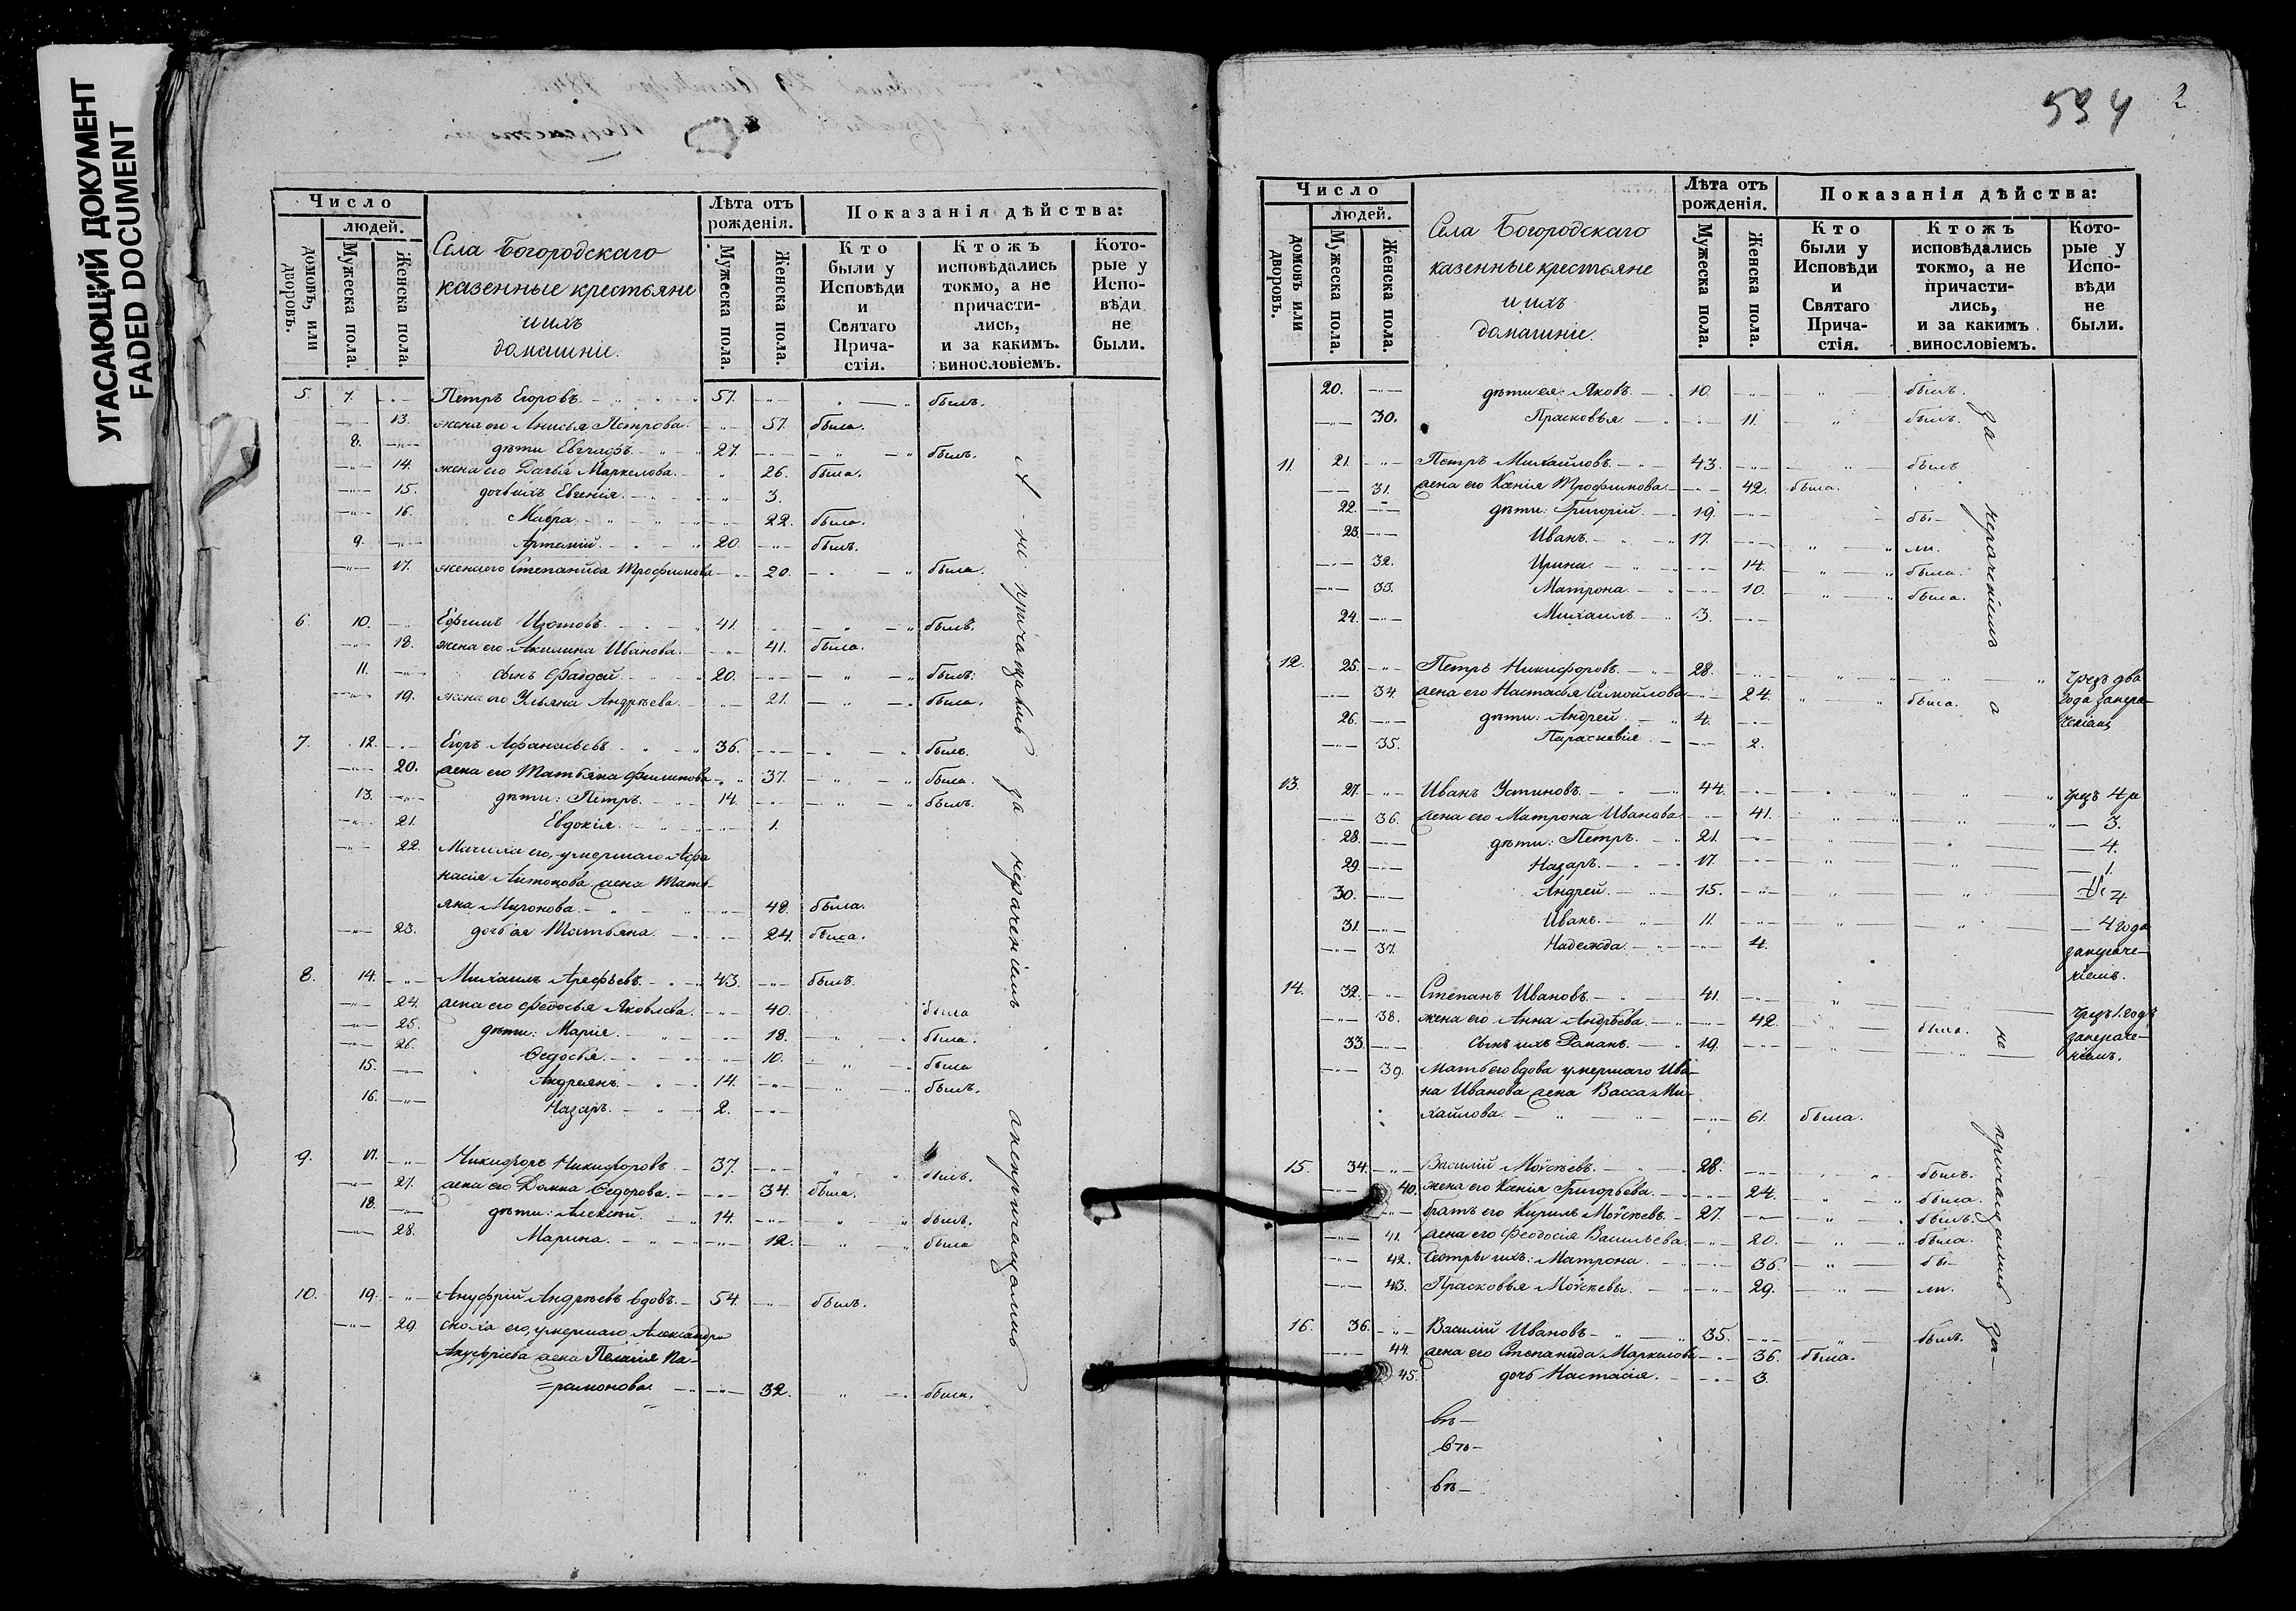 УГАСАЮЩИЙ ДОКУМЕНТ
FADED DOCUMENT
Число
людей.
домовъ, или дворовъ.
Мужеска пола.
Женска пола.
Села Богородскаго
казенные крестьяне
и ихъ
домашніе.
Лѣта отъ рожденія.
Мужеска пола.
Женска пола.
Показанія дѣйства:
Кто были у Исповѣди и Святаго Причастія.
Ктожъ исповѣдались токмо, а не причастились, и за какимъ винословіемъ.
Которые у Исповѣди не были.
5. 7. Петръ Егоровъ 57. былъ.
13. жена его Анисья Петрова 57. была.
8. дѣти Евграфъ 27. былъ.
14. жена его Дарья Маркелова 26. была.
15. дочь ихъ Евгенія 3.
16. Мавра 22. была.
9. Артемій 20. былъ.
17. жена его Степанида Трофимова 20. была.
6. 10. Ефимъ Изотовъ 41. былъ.
18. жена его Акилина Иванова 41. была.
11. сынъ Фаддей 20. былъ.
19. жена его Ульяна Андрѣева 21. была.
7. 12. Егоръ Афанасьевъ 36. былъ.
20. жена его Татьяна Филипова 37. была.
13. дѣти: Петръ 14. былъ.
21. Евдокія 1.
22. Мачиха его, умершаго Афа
насія жена Тать-
яна Миронова 48. была.
23. дочь ея Татьяна 24. была.
8. 14. Михаилъ Арефьевъ 43. былъ.
24. жена его Федосья Яковлева 40. была
25. дѣти: Марія 18. была.
26. Ѳедосья 10. была
15. Андреянъ 14. былъ.
16. Назаръ 2.
9. 17. Никифоръ Никифоровъ 37. былъ.
27. жена его Домна Ѳедорова 34. была.
18. дѣти: Алексѣй 14. былъ.
28. Марина 12. была
10. 19. Ануфрій Андрѣевъ вдовъ 54. былъ.
29. сноха его, умершаго Александра
Ануфріева жена Пелагія Па-
=рамонова 32. была.
А не причащались за нераченіемъ
534 2
Число
людей.
домовъ или дворовъ.
Мужеска пола.
Женска пола.
Села Богородскаго
казенные крестьяне
и ихъ
домашніе.
Лѣта отъ рожденія.
Мужеска пола.
Женска пола.
Показанія дѣйства:
Кто были у Исповѣди и Святаго Причастія.
Ктожъ исповѣдались токмо, а не причастились, и за какимъ винословіемъ.
Которые у Исповѣди не были.
20. дѣти ея: Яковъ 10. былъ.
30. Прасковья 11.
11. 21. Петръ Михайловъ 43. былъ
31. жена его Ксенія Трофимова 42. была.
22. дѣти: Григорій 19. бы-
23. Иванъ 17. ли.
32. Ирина 14. была.
33. Матрона 10. была.
24. Михаилъ 3.
12. 25. Петръ Никифоровъ 28. чрезъ два
34. жена его Настасья Самойлова 24. была. года занера-
26. дѣти: Андрей 4. ченіемъ
35. Параскевія 2.
13. 27. Иванъ Устиновъ 44. чрезъ 4
36. жена его Матрона Иванова 41. 3.
28. дѣти: Петръ 21. 4.
29. Назаръ 17. 1.
30. Андрей 15. 4
31. Иванъ 11. 4 года
37. Надежда 4. занераче-
ніемъ.
14. 32. Степанъ Ивановъ 41. чрезъ 1. годъ
38. жена его Анна Андрѣева 42. была. занераче-
33. сынъ ихъ Романъ 19. ніемъ.
39. Мать его вдова умершаго Ива-
на Иванова жена Васса Ми-
хайлова 61. была.
15. 34. Василій Моѵсѣевъ 28. былъ.
40. жена его Ксенія Григорьева 24. была.
братъ его Кирилъ Моѵсѣевъ 27. былъ.
41. жена его Феодосія Васильева 20. была.
42. Сестры ихъ: Матрона 36. бы-
43. Прасковья Моѵсѣевы 29. ли.
16. 36. Василій Ивановъ 35. былъ.
44. жена его Степанида Маркелова 36. была.
45. дочь Настасія 3.
за нераченіемъ а не причащались за-